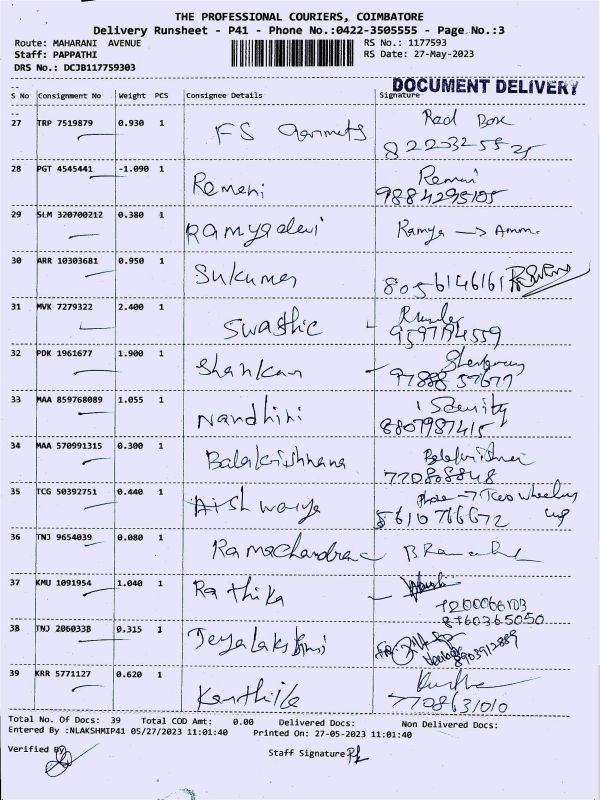 THE PROFESSIONAL COURIERS, COIMBATORE
Delivery Runsheet - P41 - Phone No.:0422-3505555 - Page No.:3
Route: MAHARANI AVENUE RS No.: 1177593
Staff: PAPPATHI RS Date: 27-May-2023
DRS No.: DCJB117759303
DOCUMENT DELIVERY
S No Consignment No Weight PCS Consignee Details Signature
27 TRP 7519879 0.930 1 FS Red Box
28 PGT 4545441 -1.090 1 Remeni
9884295105
29 SLM 320700212 0.380 1 Ramyadevi Ramya → Amma
30 ARR 10303681 0.950 1 Sukumar 8056146161
31 MVK 7279322 2.400 1 Swasthic
9597194559
32 PDK 1961677 1.900 1 Shankar
33 MAA 859768089 1.055 1 Nandhini
8807987415
34 MAA 570991315 0.300 1 Balakrishnana
35 TCG 50392751 0.440 1 Aishwarya
36 TNJ 9654039 0.080 1 Ramachandra
37 KMU 1091954 1.040 1 Rathika
8760365050
38 TNJ 2060338 0.315 1 Jeyalakshmi
39 KRR 5771127 0.620 1
7708631010
Total No. Of Docs: 39 Total COD Amt: 0.00 Delivered Docs: Non Delivered Docs:
Entered By :NLAKSHMIP41 05/27/2023 11:01:40 Printed On: 27-05-2023 11:01:40
Verified By
Staff Signature